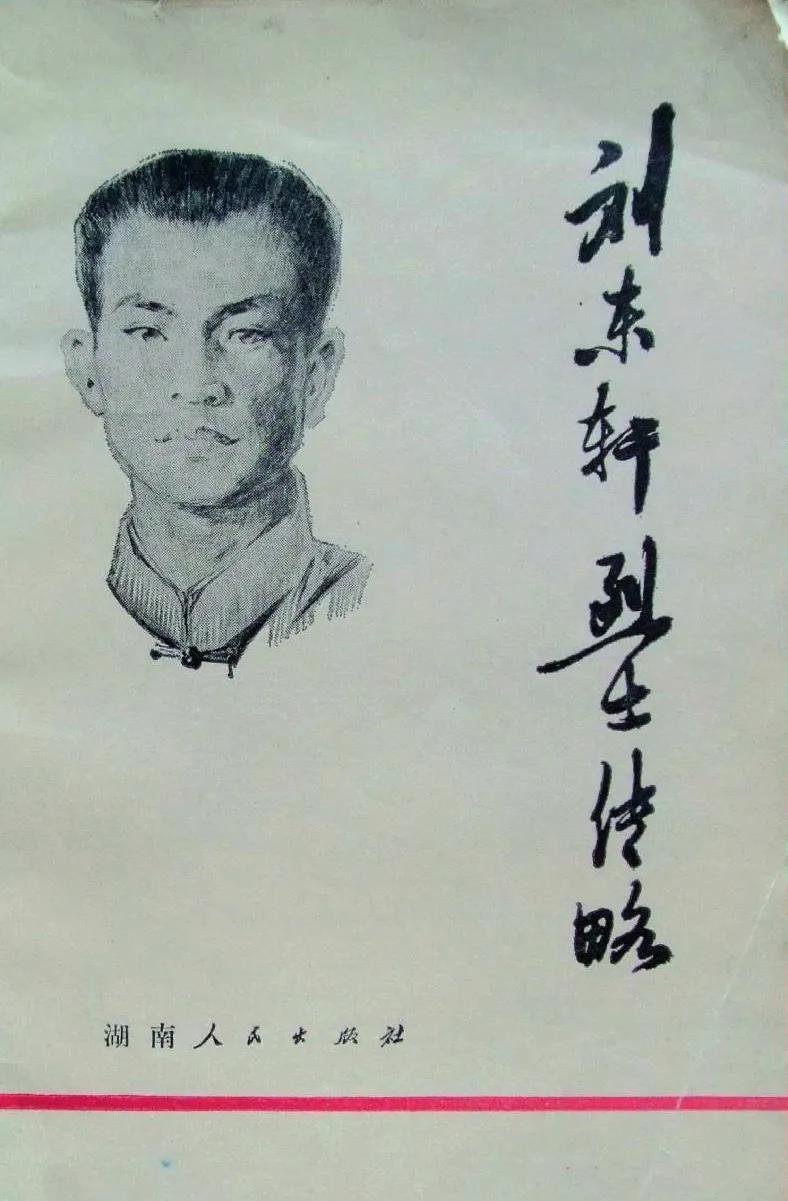 刘东轩烈士传略
湖南人民出版社